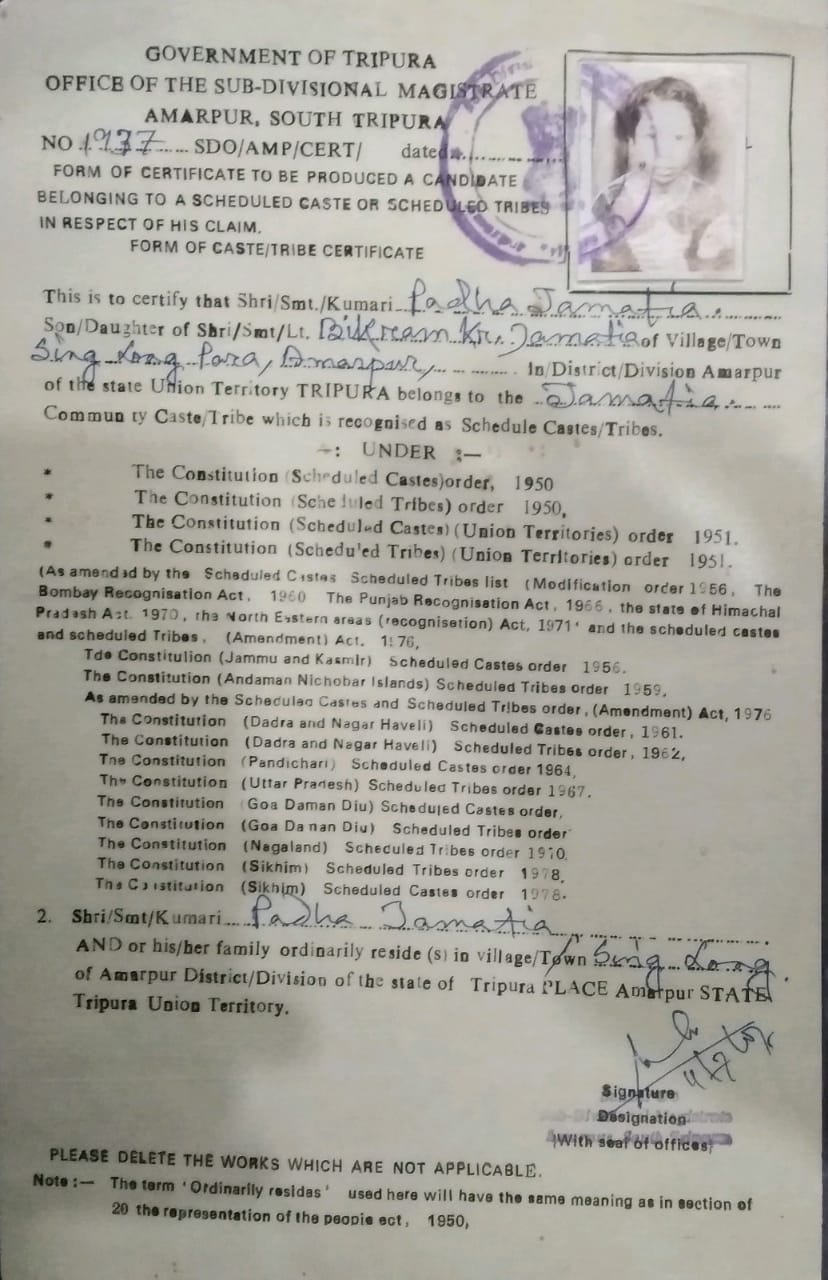 GOVERNMENT OF TRIPURA
OFFICE OF THE SUB-DIVISIONAL MAGISTRATE
AMARPUR, SOUTH TRIPURA
NO 1977 ..... SDO/AMP/CERT/ dated..............
FORM OF CERTIFICATE TO BE PRODUCED A CANDIDATE
BELONGING TO A SCHEDULED CASTE OR SCHEDULED TRIBES
IN RESPECT OF HIS CLAIM.
FORM OF CASTE/TRIBE CERTIFICATE
This is to certify that Shri/Smt./Kumari Padha Jamatia.
Son/Daughter of Shri/Smt/Lt. Bikream Kr. Jamatia of Village/Town
Sing Long Para, Amarpur, .............. In/District/Division Amarpur
of the state Union Territory TRIPURA belongs to the Jamatia.
Commun ty Caste/Tribe which is recognised as Schedule Castes/Tribes.
—: UNDER :—
* The Constitution (Scheduled Castes)order, 1950
* The Constitution (Scheduled Tribes) order 1950,
* The Constitution (Scheduled Castes) (Union Territories) order 1951.
* The Constitution (Scheduled Tribes) (Union Territories) order 1951.
(As amended by the Scheduled Castes Scheduled Tribes list (Modification order 1956, The
Bombay Recognisation Act, 1960 The Punjab Recognisation Act, 1966, the state of Himachal
Pradesh Act. 1970, the North Eastern areas (recognisetion) Act, 1971' and the scheduled castes
and scheduled Tribes, (Amendment) Act. 1976,
Tde Constitulion (Jammu and Kasmir) Scheduled Castes order 1956.
The Constitution (Andaman Nichobar Islands) Scheduled Tribes order 1959,
As amended by the Scheduled Castes and Scheduled Tribes order, (Amendment) Act, 1976
The Constitution (Dadra and Nagar Haveli) Scheduled Castes order, 1961.
The Constitution (Dadra and Nagar Haveli) Scheduled Tribes order, 1962,
The Constitution (Pandichari) Scheduled Castes order 1964,
The Constitution (Uttar Pradesh) Scheduled Tribes order 1967.
The Constitution (Goa Daman Diu) Scheduled Castes order,
The Constitution (Goa Daman Diu) Scheduled Tribes order
The Constitution (Nagaland) Scheduled Tribes order 1970,
The Constitution (Sikhim) Scheduled Tribes order 1978,
The Constitution (Sikhim) Scheduled Castes order 1978.
2. Shri/Smt/Kumari Padha Jamatia
AND or his/her family ordinarily reside (s) in village/Town Sing Long
of Amarpur District/Division of the state of Tripura PLACE Amarpur STATE
Tripura Union Territory.
Signature
Designation
(With seal of offices)
PLEASE DELETE THE WORKS WHICH ARE NOT APPLICABLE.
Note :— The term 'Ordinarily resides' used here will have the same meaning as in section of
20 the representation of the people ect, 1950,